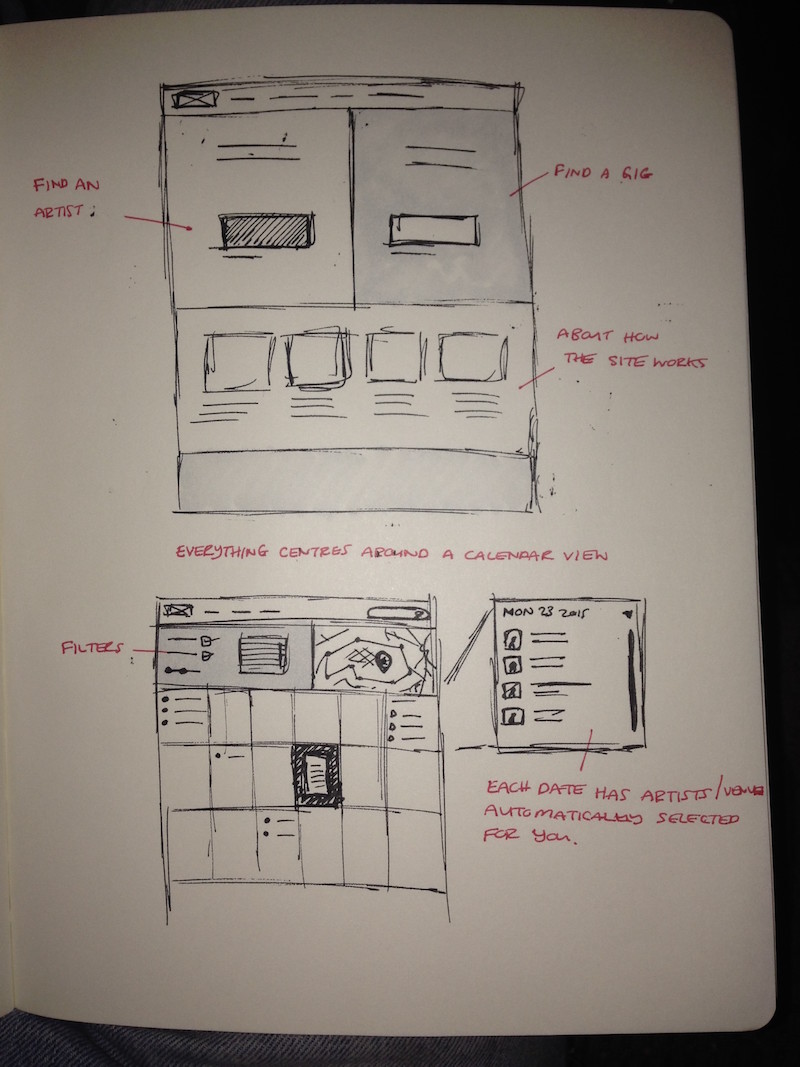 FIND AN
ARTIST :
FIND A GIG
ABOUT HOW
THE SITE WORKS
EVERYTHING CENTRES AROUND A CALENDAR VIEW
FILTERS
MON 23 2015
EACH DATE HAS ARTISTS/VENUE
AUTOMATICALLY SELECTED
FOR YOU.